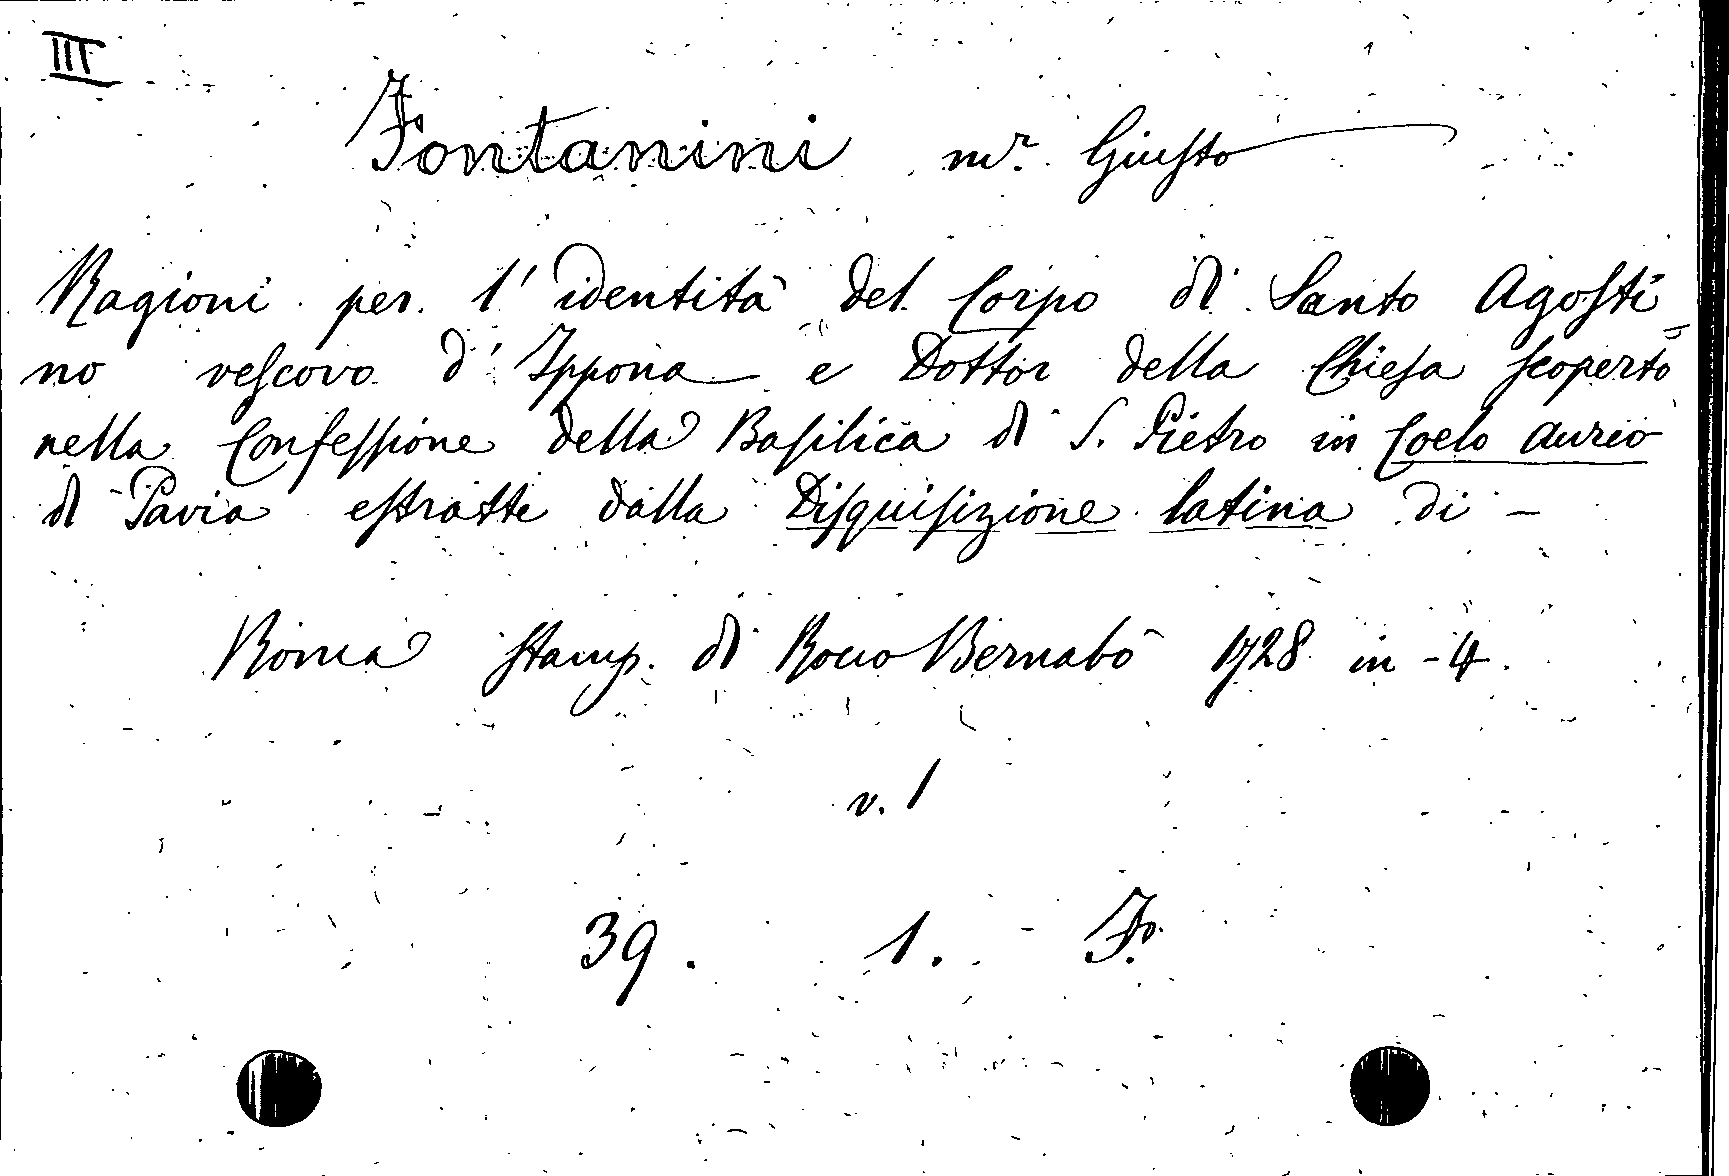 III
Fontanini m.r Giusto
Ragioni per l'identità del Corpo di Santo Agosti
no vescovo d'Ippona e Dottor della Chiesa scoperto
nella Confessione della Basilica di S. Pietro in Coelo aureo
di Pavia estratte dalla Disquisizione latina di -
Roma stamp. di Rocco Bernabò 1728 in -4.
v. 1
39. 1. F.